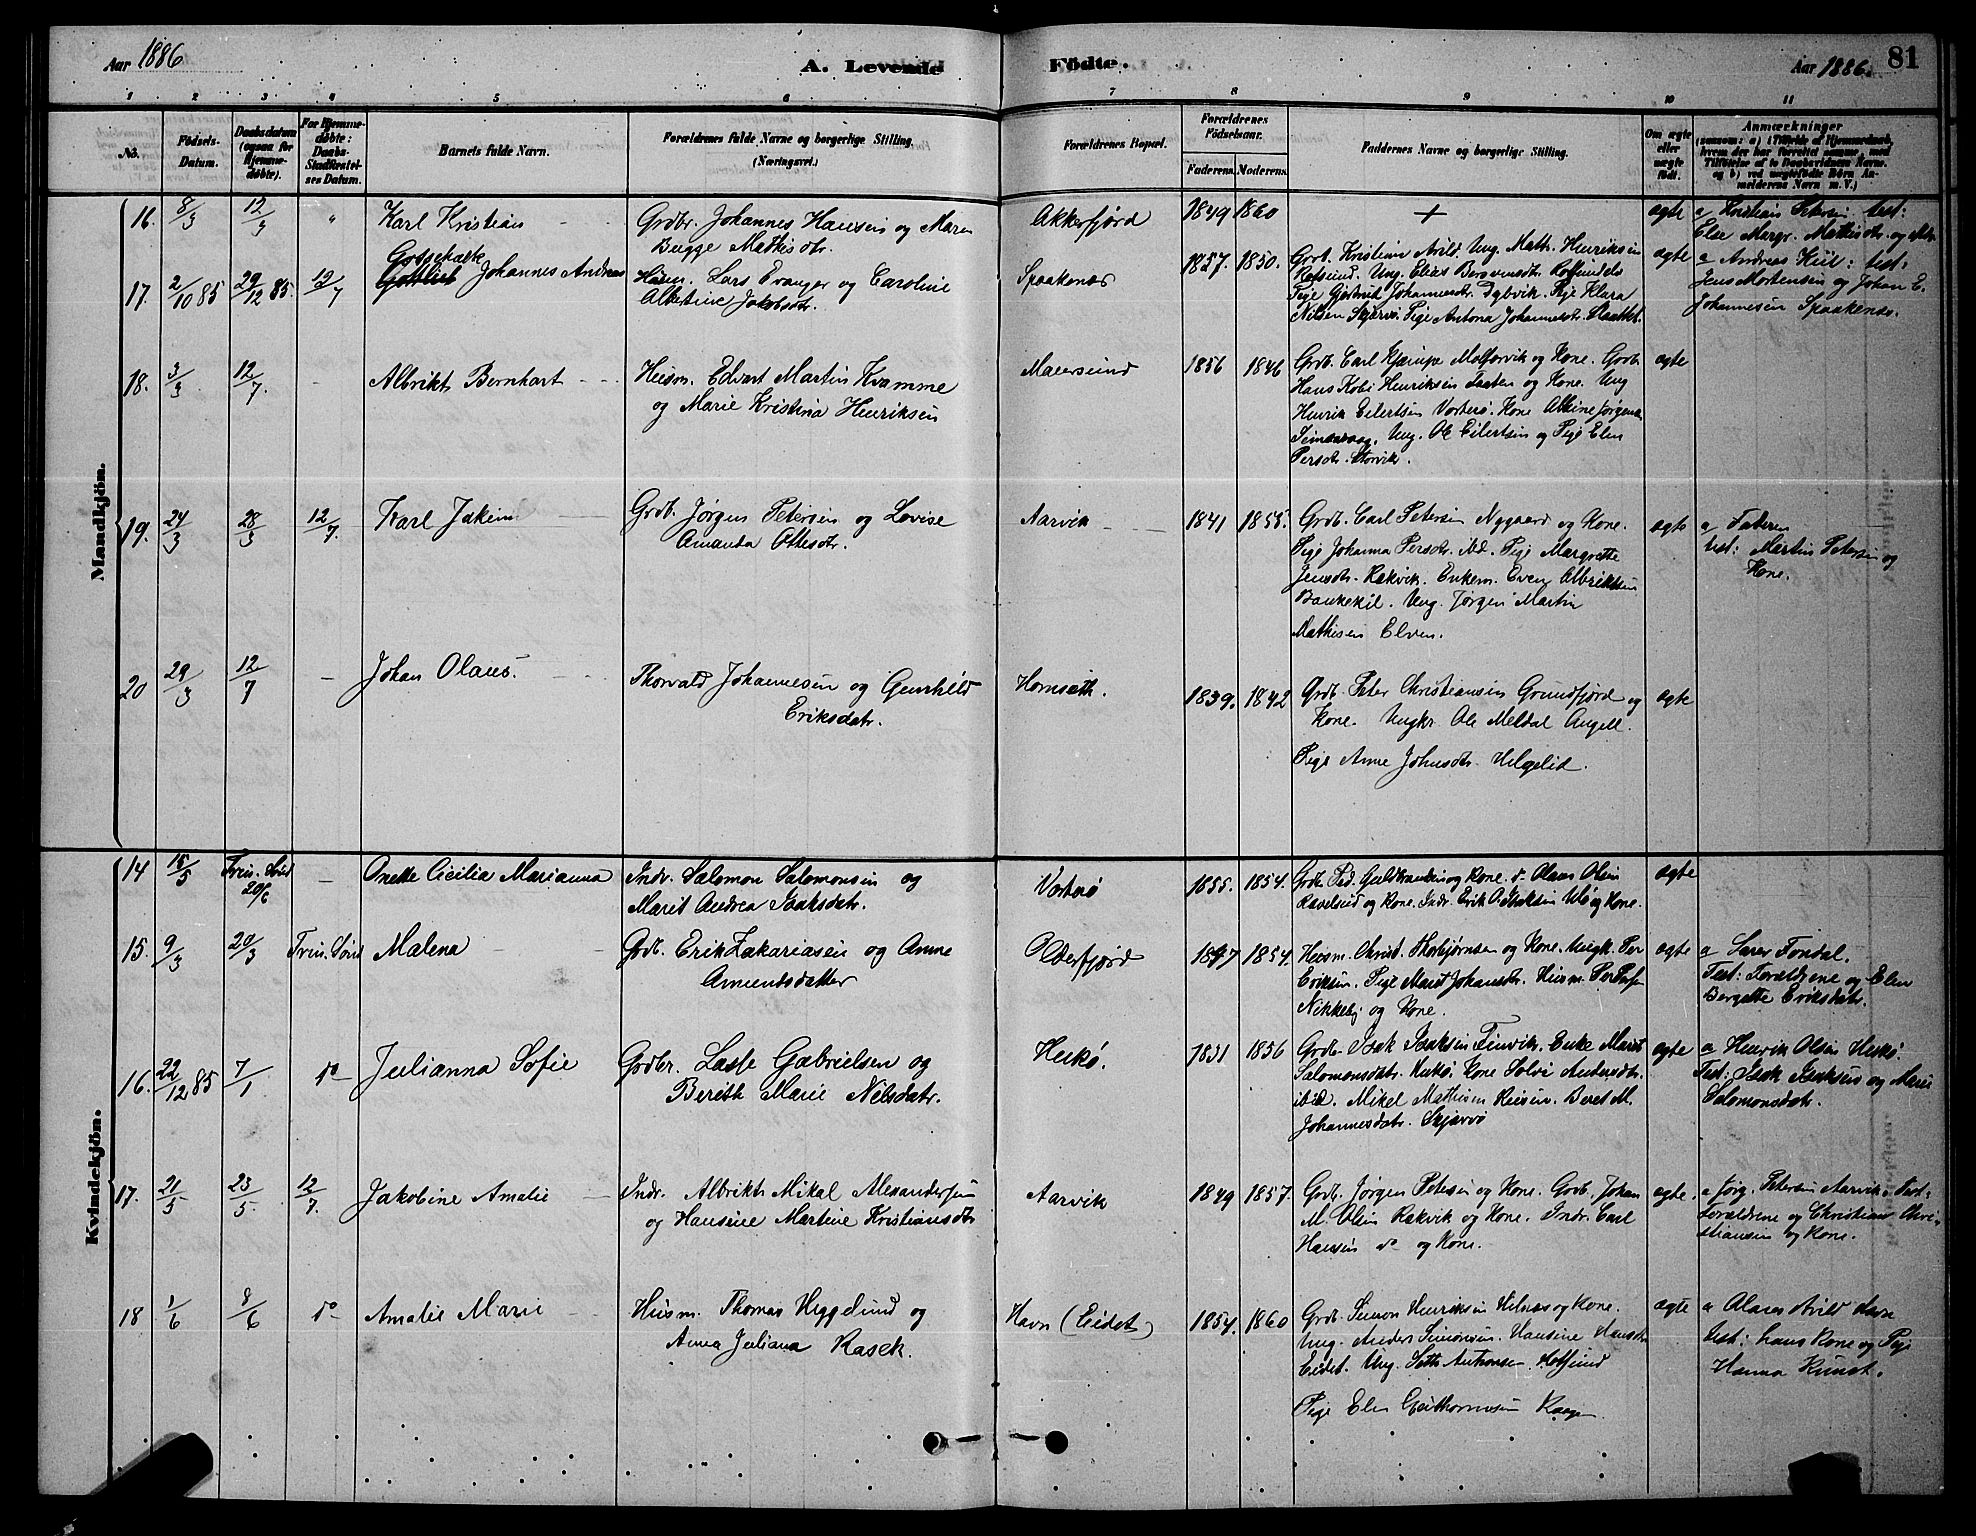 Aar 1886
A. Levende Födte.
Aar 1886. 81
1 2 3 4 5 6 7 8 9 10 11
No.
Födsels-Datum.
Daabsdatum (ogsaa for Hjemmedøbte).
For Hjemmedøbte: Daabs-Stadfæstelses Datum.
Barnets fulde Navn.
Forældrenes fulde Navne og borgerlige Stilling. (Næringsvei.)
Forældrenes Bopæl.
Forældrenes Födselsaar.
Faderens. Moderens.
Faddernes Navne og borgerlige Stilling.
Om ægte eller uægte født.
Anmærkninger
Mandkjön.
16. 8/3 12/7 " Karl Kristian
Grdbr. Johannes Hansen og Maren
Bugge Mathisdtr.
Akkerfjord 1849 1860 + ægte
a Kristian Petersen. test:
Else Margr. Mathisdtr. og
17. 2/10 85 29/12 85. 12/7 Gottlieb Johannes Andreas
Husm. Lars Evanger og Caroline
Albertine Jakobsdtr.
Spaakenæs 1857. 1850.
Grdb. Kristian Arild. Ung. Math. Henriksen
Rotsund. Ung. Elias
Pige Gjertrud Johannesdtr. Dybvik. Pige Klara
Nilsen Skjærvø. Pige Antona Johannesdtr.
ægte
a Andreas Kiil: test:
Jens Mortensen og Johan E.
Johannesen Spaakenæs.
18. 3/3 12/7. - Albrikt Bernhart
Husm. Edvart Martin Kvamme
og Marie Kristina Henriksen
Maursund 1856 1846
Grdb. Carl og Kone. Grdb.
Hans Kobi Henriksen Taaten og Kone. Ung
Henrik Eilertsen Vorterø. Kone Albine Jørgens
Ung. Ole Eilertsen og Pige Elen
Persdtr. Storvik.
ægte
19. 24/3 28/3 12/7. Karl Jakim
Grdb. Jørgen Petersen og Lovise
Amanda Ottesdtr.
Aarvik 1841 1855.
Grdb. Carl Petersen Nygaard og Kone.
Pige Johanna Persdtr. ibd. Pige Margrethe
Jensdtr. Rakvik. Enkem. Even Albriktsen
Baukekil. Ung. Jørgen Martin
Mathisen Elven.
ægte
a Faderen
test: Martin Petersen og
Kone.
20 29/3 12/7 - Johan Olaus.
Thorvald Johannesen og Gunhild
Eriksdatr.
Hornsæth. 1839. 1842
Grdb. Peter Christiansen Grundfjord og
Kone. Ungkr. Ole Meldal Angell.
Pige Anne Johnsdtr. Helgelid.
ægte
Kvindekjön.
14 15/5 Trin. Sønd 20/6 - Anette Cicilia Marianna
Indr. Salomon Salomonsen og
Marit Andrea Isaksdatr.
Vorterø 1855. 1854.
Grdb. Ped. Guldbrandsen og Kone. d. Olaus Olsen
Ravelseid og Kone. Indr. Erik A. Isaksen Uløe og Kone.
ægte
15. 9/3 20/3 Trin. Sønd Malena
Grdb. Erik Zakariasen og Anne
Amundsdatter
Olderfjord 1847 1854.
Husm. Christ. Thobjørnsen og Kone. Ungk. Per
Eriksen. Pige Marit Johansdtr. Husm. Per
Nikkeby og Kone.
ægte
a Saras Tøndal.
Test: Forældrene og Elen
Bergette Eriksdatr.
16. 22/12 85 7/1 do Julianna Sofie
Grdbr. Lasse Gabrielsen og
Bereth Marie Nilsdatr.
Huskø. 1831 1856
Grdb. Isak Isaksen Finvik. Enke Marit
Salomonsdatr. Huskø. Kone Solvi Andersdtr.
ibid. Mikel Mathisen Reisen. Beret M.
Johannesdatr. Skjervø
ægte
a Henrik Olsen Huskø.
Test: Isak Isaksen og Marie
Salomonsdatr.
17. 21/5 23/5 12/7. Jakobine Amalie
Indr. Albrikt Mikal Alexandersen
og Hansine Martine Kristiansdtr
Aarvik 1849 1857.
Grdb. Jørgen Petersen og Kone. Grdb. Johan
M. Olsen Rakvik og Kone. Indr. Carl
Hansen do og Kone.
ægte.
a Jørg. Petersen Aarvik. Test:
Forældrene og Christian Chri-
stiansen og Kone.
18 1/6 8/6 do Amalie Marie
Husm. Thomas Heggelund og
Anna Juliana Rasck.
Havn (Eidet) 1854. 1860
Grdb. Simon Henriksen Hilnæs og Kone.
Ung. Anders Simonsen. Hansine Hansdtr
Eidet. Ung. Seth Antonsen
Pige Elen
ægte
a Olaus Arild Havn
test: hans Kone og Pige
Hanna Kunst.